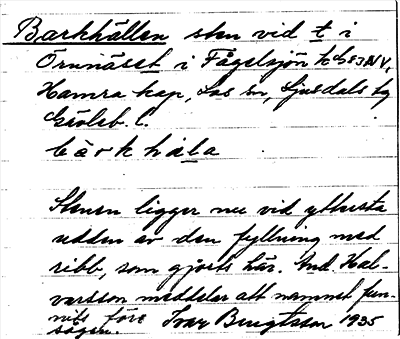 Barkhällen sten vid t i
Örnnässt i Fågelsjön
Hamra kap, Los sn, Ljusdals tg
Gävleb. l.
bàrkhala
Stenen ligger nu vid yttersta
udden av den fyllning med
ribb, som gjorts här. And. Hal-
varsson meddelar att namnet fun-
nits före
sågen. Ivar Bengtsson 1935